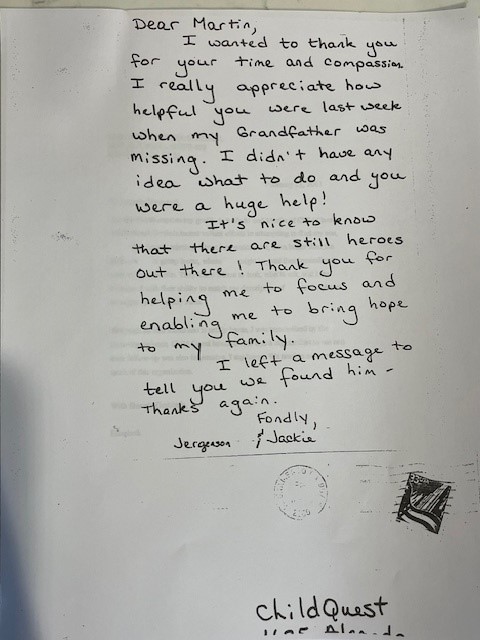 Dear Martin,
I wanted to thank you
for your time and compassion.
I really appreciate how
helpful you were last week
when my Grandfather was
missing. I didn't have any
idea what to do and you
were a huge help!
It's nice to know
that there are still heroes
out there! Thank you for
helping me to focus and
enabling me to bring hope
to my family.
I left a message to
tell you we found him -
Thanks again.
Fondly,
Jergenson & Jackie
Child Quest